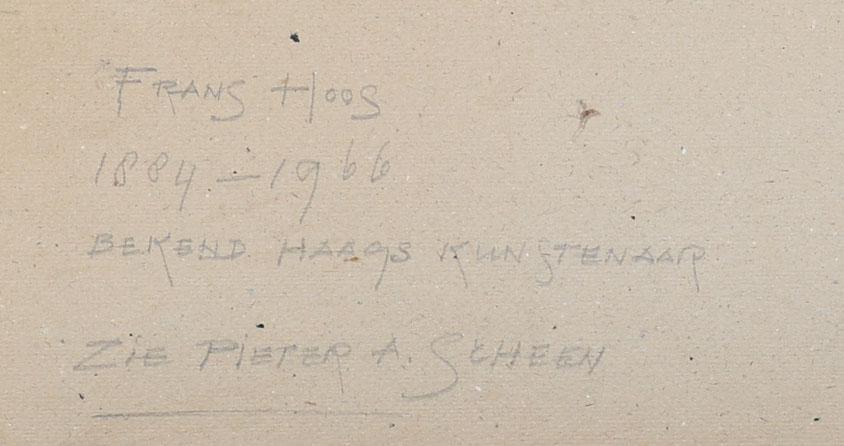 FRANS HOOS
1884 - 1966
BEKEND HAAGS KUNSTENAAR
ZIE PIETER A. SCHEEN